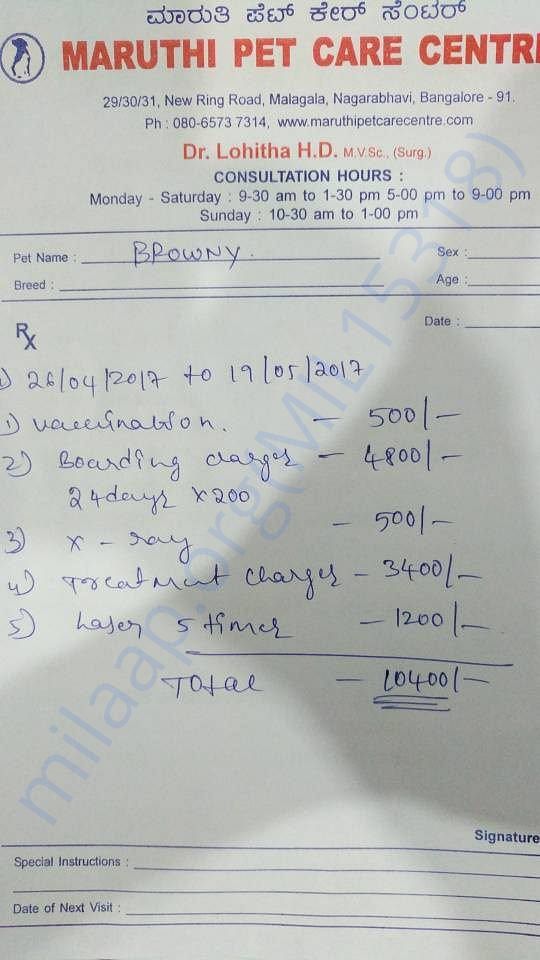 ಮಾರುತಿ ಪೆಟ್ ಕೇರ್ ಸೆಂಟರ್
MARUTHI PET CARE CENTR
29/30/31, New Ring Road, Malagala, Nagarabhavi, Bangalore - 91.
Ph : 080-6573 7314, www.maruthipetcarecentre.com
Dr. Lohitha H.D. M.V.Sc., (Surg.)
CONSULTATION HOURS :
Monday - Saturday : 9-30 am to 1-30 pm 5-00 pm to 9-00 pm
Sunday : 10-30 am to 1-00 pm
Pet Name : BROWNY. Sex :
Breed : Age :
Date :
Rx
26/04/2017 to 19/05/2017
1) vaccination. - 500/-
2) Boarding charges - 4800/-
24days x200
3) x-ray - 500/-
4) Treatment charges - 3400/-
5) Laser 5 times - 1200/-
Total - 10400/-
Signature
Special Instructions :
Date of Next Visit :
milaap.org(MIL15318)